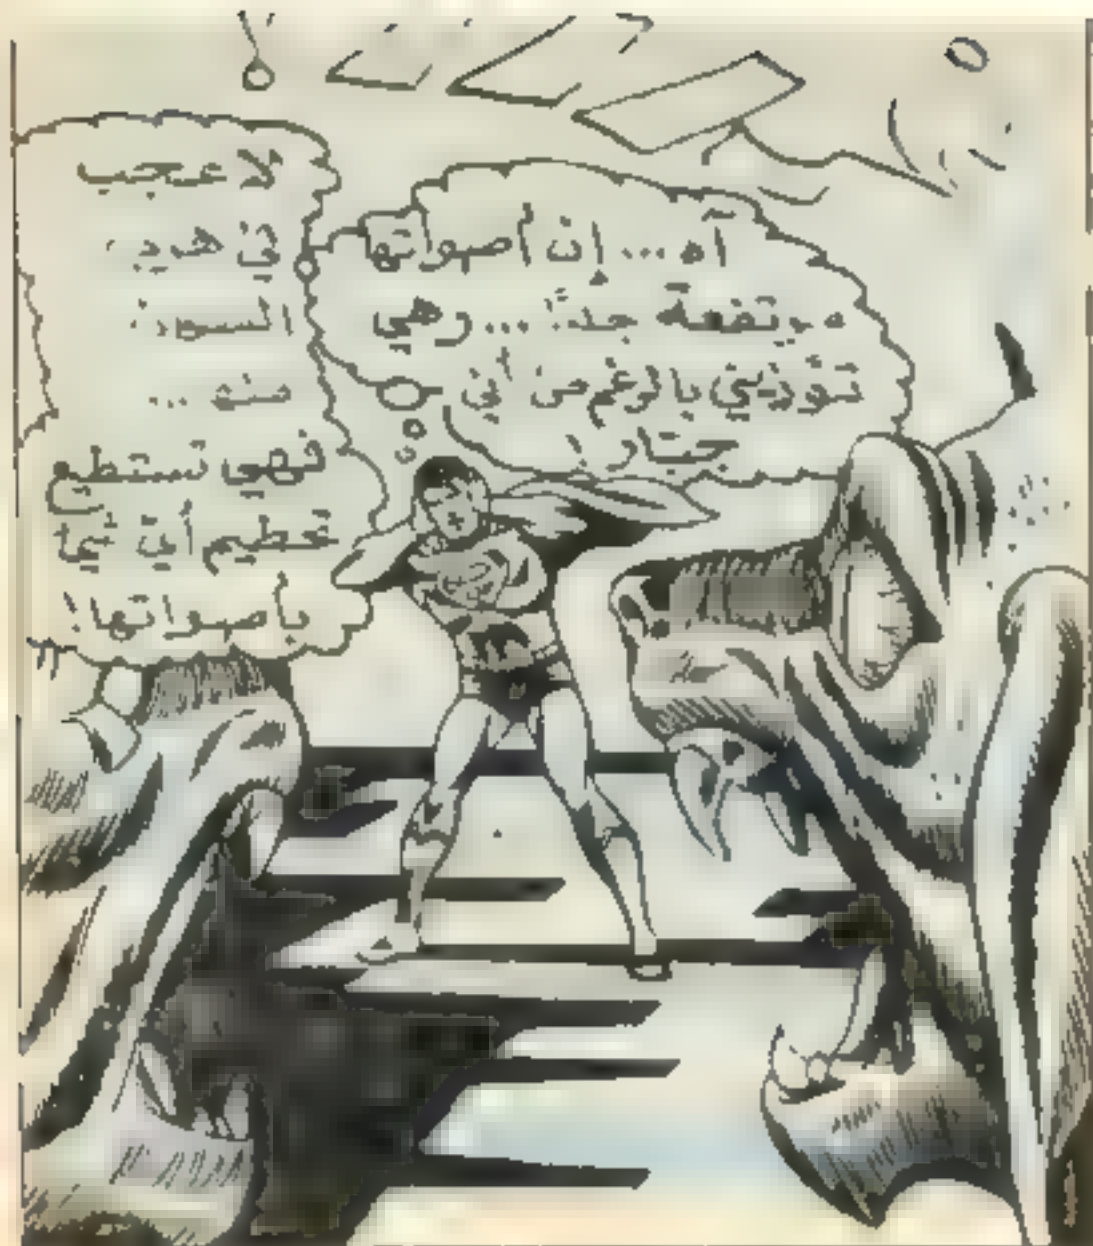 آه... إن أصواتها
مرتفعة جداً... وهي
تؤذيني بالرغم من أني
جبّار!
لا عجب
في هرب
السود
منه ...
فهي تستطيع
تحطيم أي شيء
بأصواتها!